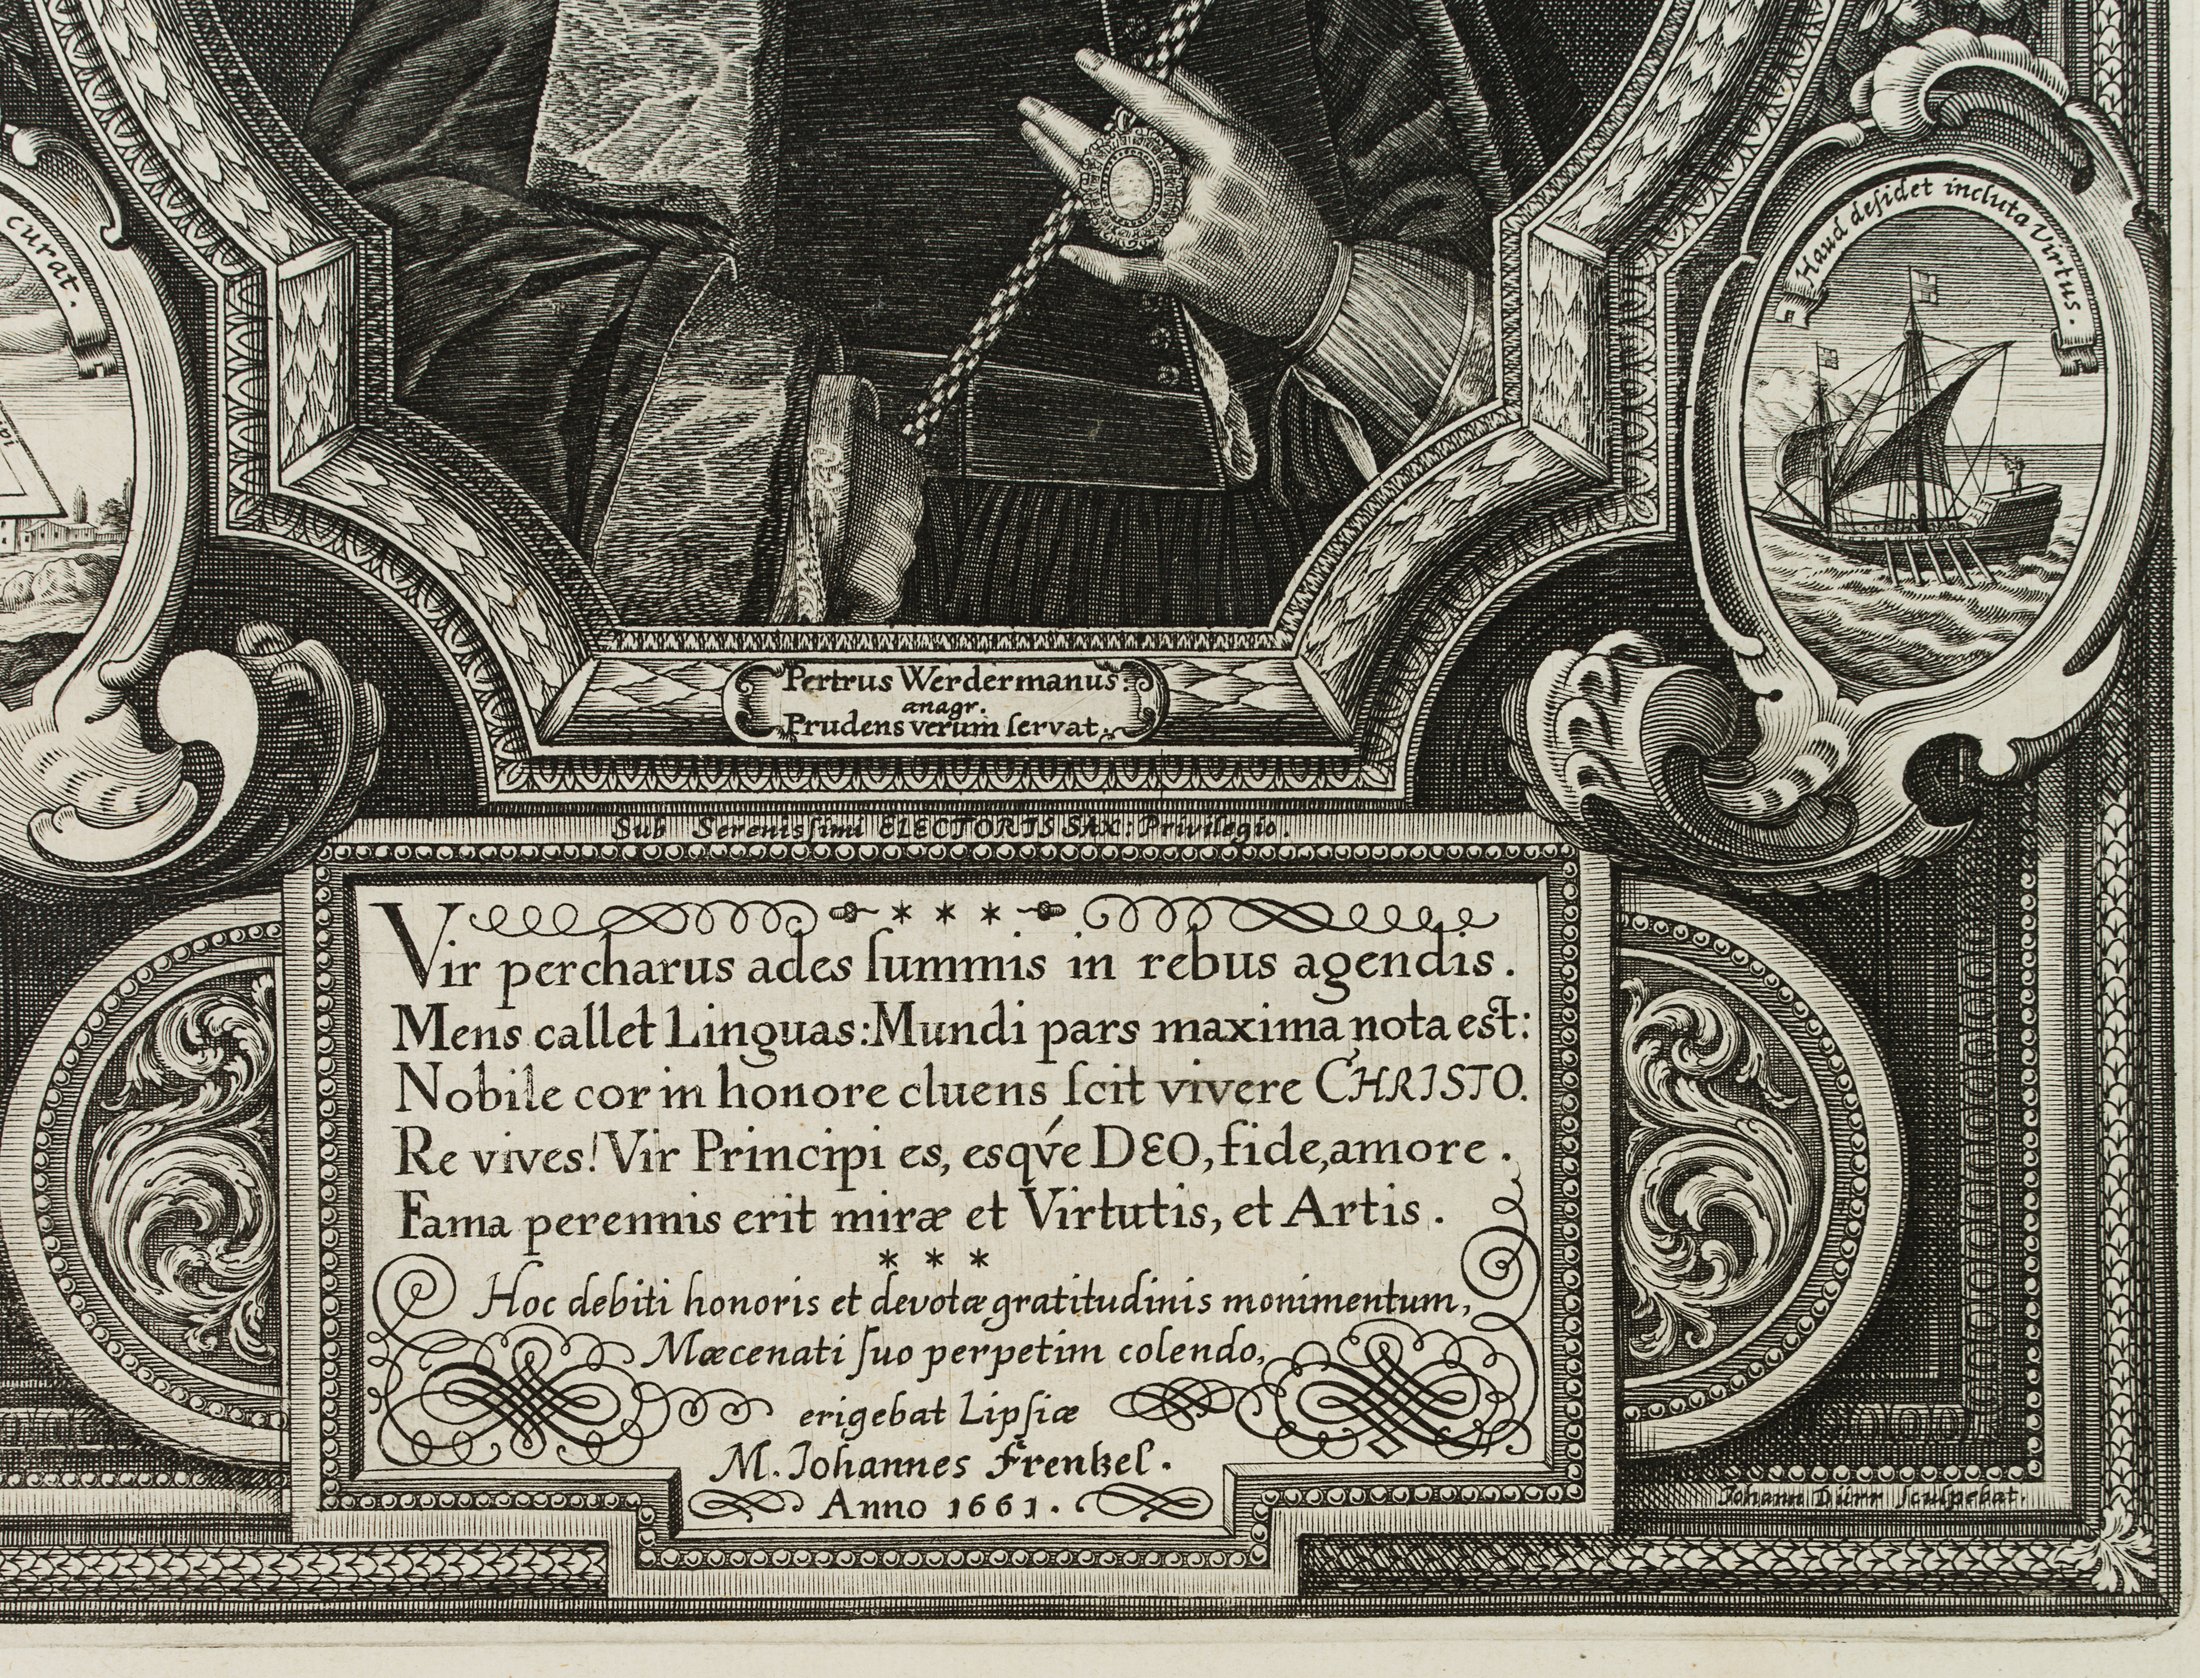 curat.
Haud desidet incluta Virtus.
Pertrus Werdermanus:
anagr.
Prudens verum servat.
Sub Serenissimi ELECTORIS SAX: Privilegio.
Vir percharus ades summis in rebus agendis.
Mens callet Linguas: Mundi pars maxima nota est:
Nobile cor in honore cluens scit vivere CHRISTO.
Re vives! Vir Principi es, esqve DEO, fide, amore.
Fama perennis erit miræ et Virtutis, et Artis.
* * *
Hoc debiti honoris et devotæ gratitudinis monimentum,
Mæcenati suo perpetim colendo,
erigebat Lipsiæ
M. Johannes Frenkel.
Anno 1661.
Johann Dürr sculpebat.